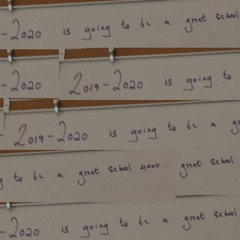 -2020 is going to be a great school
-2020 2019-2020 is going to
- 2019-2020 is going to be a gr
g to be a great school year. great school
-2020 is going to be a great school